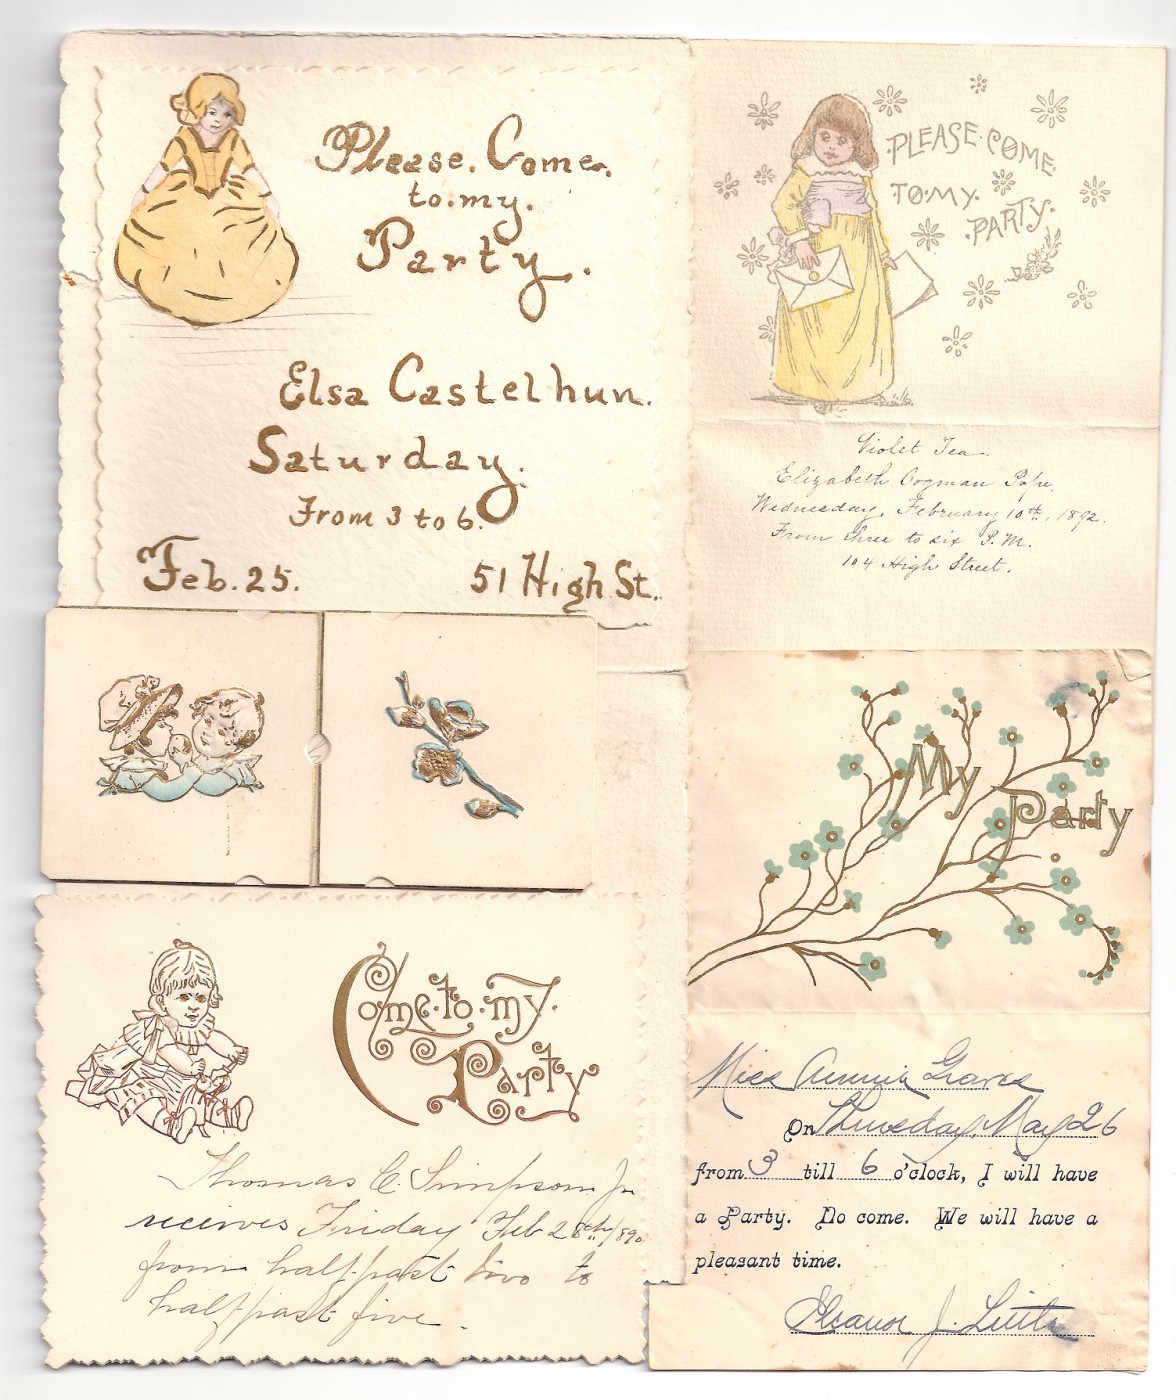 Please. Come.
to. my.
Party.
Elsa Castelhun.
Saturday.
From 3 to 6.
Feb. 25. 51 High St.
·PLEASE·COME·
TO·MY·
·PARTY·
Violet Tea.
Elizabeth Cogman Pope.
Wednesday, February 10th, 1892.
From three to six P.M.
104 High Street.
Come·to·my·
Party
Thomas C. Simpson Jr
receives Friday Feb 28th/890
from half past two to
half past five.
My
Party
Miss Annie Graves
On Thursday, May 26
from 3 till 6 o'clock, I will have
a Party. Do come. We will have a
pleasant time.
Eleanor J. Little